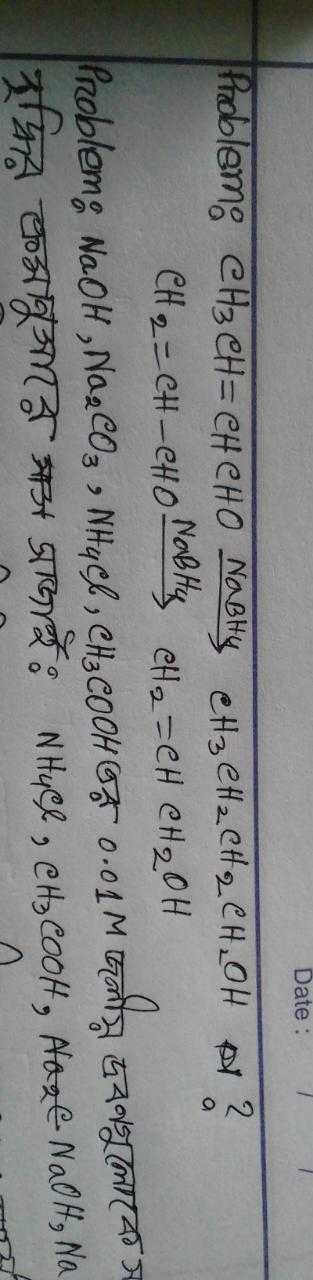 Date: / /
Problem: CH3CH=CHCHO NaBH4→ CH3CH2CH2CH2OH ?
CH2=CH-CHO NaBH4→ CH2=CHCH2OH
Problem: NaOH, Na2CO3, NH4Cl, CH3COOH এর 0.01M জলীয় দ্রবণগুলোকে
বৃদ্ধির ক্রমানুসারে সাজাই: NH4Cl, CH3COOH, NaOH, Na